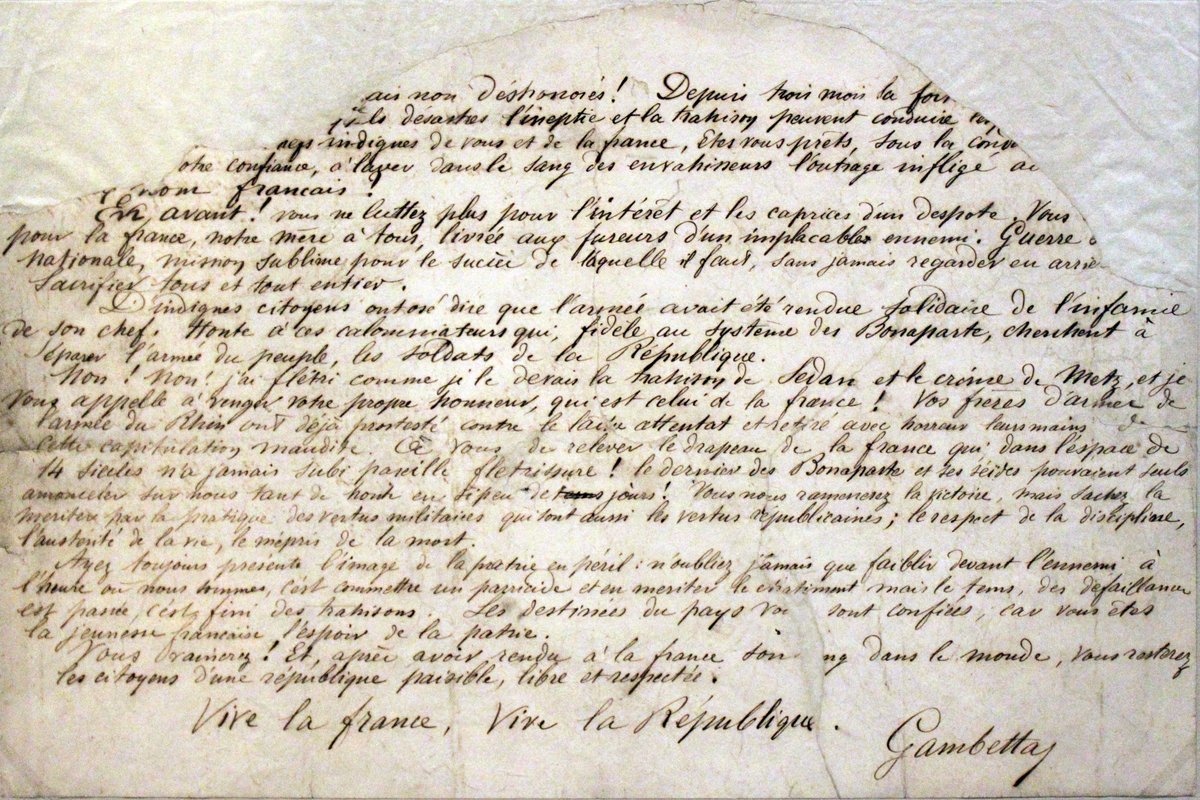 ais non déshonorés! Depuis trois mois la for
ls desastres l'ineptie et la trahison peuvent conduire
indignes de vous et de la france, Etes vous prêts, sous la con
otre confiance, à laver dans le sang des envahisseurs l'outrage infligé au
nom francais?
En avant! vous ne luttez plus pour l'intérêt et les caprices d'un despote. Vous
pour la france, notre mère à tous, livrée aux fureurs d'un implacable ennemi. Guerre
nationale, mission sublime pour le succès de laquelle il faut, sans jamais regarder en arriè
sacrifier tous et tout entier.
D'indignes citoyens ont osé dire que l'armée avait été rendue solidaire de l'infamie
de son chef. Honte à ces calomniateurs qui, fidèle au système des Bonaparte, cherchent à
séparer l'armée du peuple, les soldats de la République.
Non! Non! j'ai flétri comme je le devais la trahison de Sedan et le crime de Metz, et je
vous appelle à venger votre propre honneur, qui est celui de la france! Vos freres d'armes de
l'armée du Rhin ont déjà protesté contre le lâche attentat et retiré avec horreur leurs mains de
cette capitulation maudite. A vous de relever le drapeau de la france qui dans l'espace de
14 siècles n'a jamais subi pareille flétrissure! le dernier des Bonaparte et ses séides pouvaient seuls
amonceler sur nous tant de honte en si peu de jours! Vous nous ramenerez la victoire, mais sachez la
meriter par la pratique des vertus militaires qui sont aussi les vertus républicaines; le respect de la discipline,
l'austérité de la vie, le mépris de la mort.
Ayez toujours présente l'image de la patrie en péril: n'oubliez jamais que faiblir devant l'ennemi à
l'heure où nous sommes, c'est commettre un parricide et en meriter le châtiment mais le tems, des défaillance
est passé, c'est fini des trahisons. Les destinées du pays vo sont confiées, car vous êtes
la jeunesse francaise l'espoir de la patrie.
Vous vaincrez! Et, après avoir rendu à la france son ng dans le monde, vous resterez
les citoyens d'une république paisible, libre et respectée.
Vive la france, Vive la République.
Gambetta